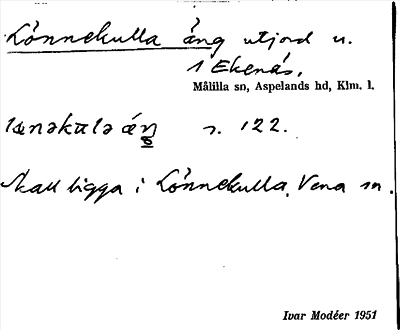 Lönnekulla äng utjord u.
1 Ekenäs,
Målilla sn, Aspelands hd, Klm. l.
s. 122.
Skall ligga i Lönnekulla, Vena sn.
Ivar Modéer 1951